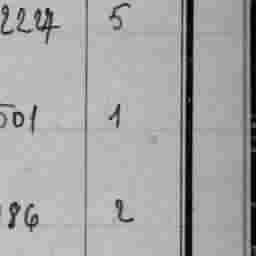 2227 5
501 1
186 2